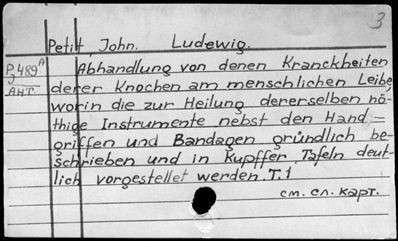 3
Petit, John. Ludewig.
P 489 A
9
Ант.
Abhandlung von denen Kranckheiten
derer Knochen am menschlichen Leibe,
worin die zur Heilung dererselben nö-
thige Instrumente nebst den Hand=
griffen und Bandagen gründlich be-
schrieben und in Kupffer Tafeln deut-
lich vorgestellet werden. T.1
см. сл. карт.